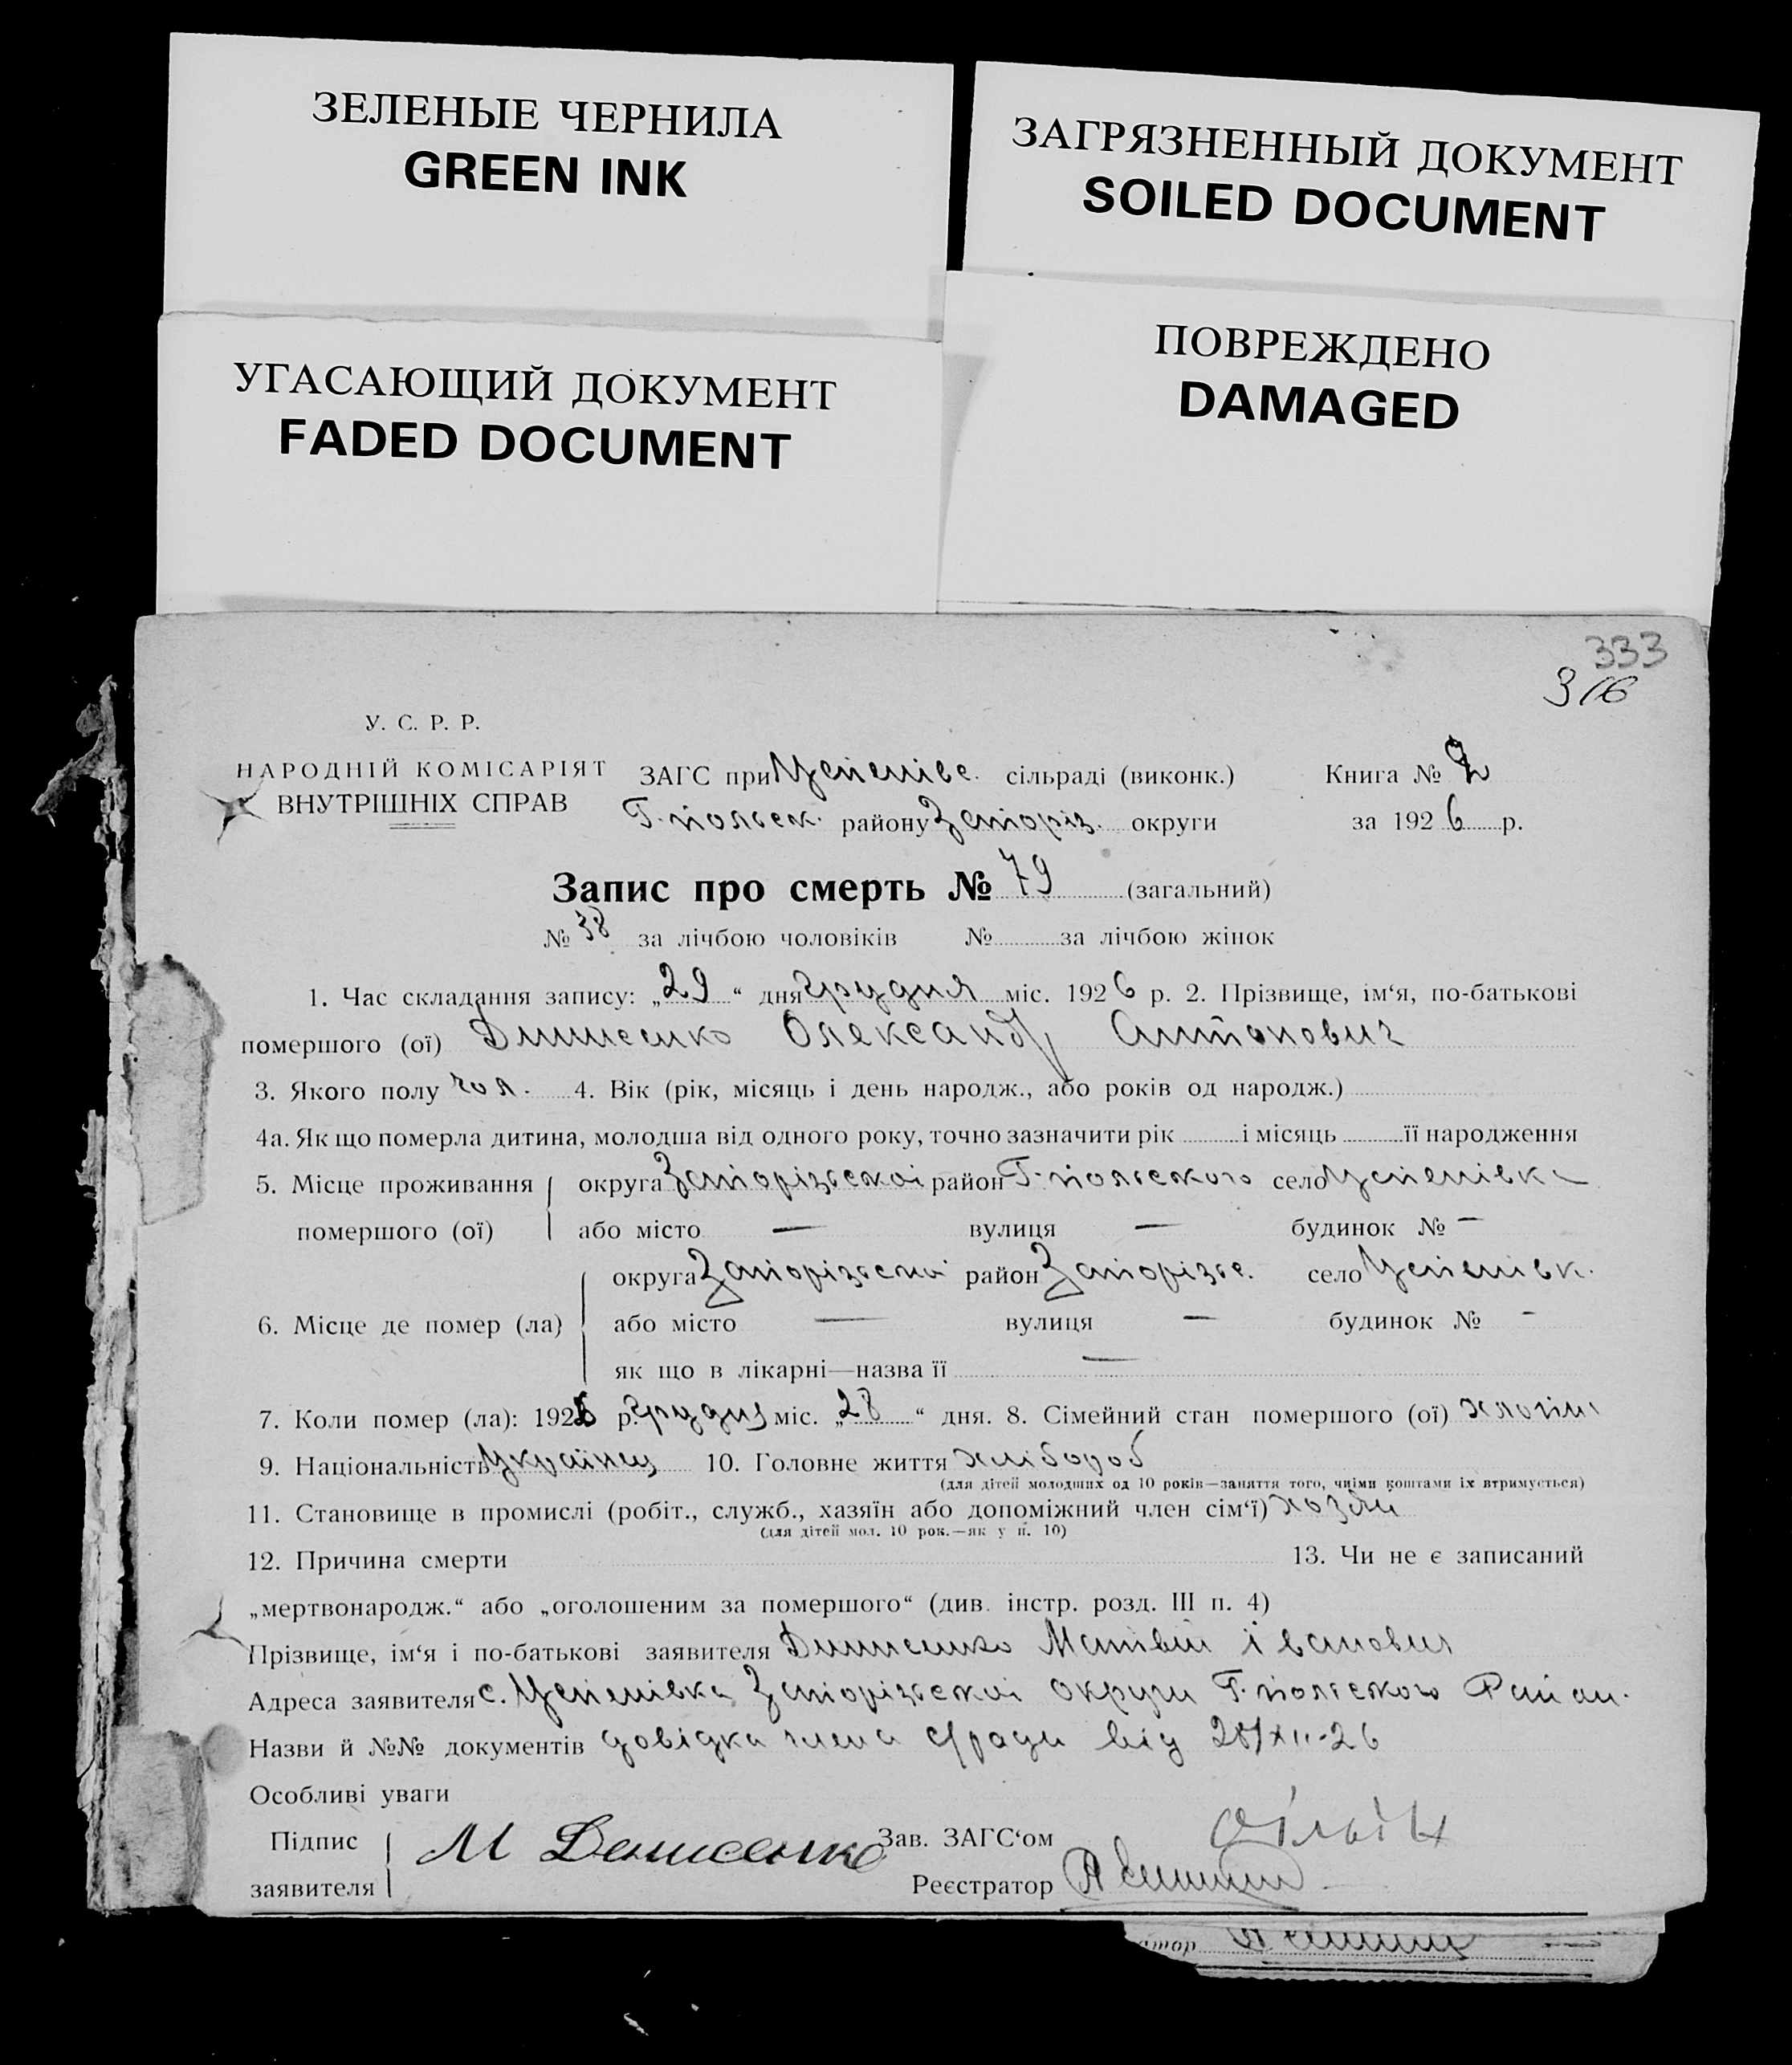 ЗЕЛЕНЫЕ ЧЕРНИЛА
GREEN INK
ЗАГРЯЗНЕННЫЙ ДОКУМЕНТ
SOILED DOCUMENT
УГАСАЮЩИЙ ДОКУМЕНТ
FADED DOCUMENT
ПОВРЕЖДЕНО
DAMAGED
333
316
У. С. Р. Р.
НАРОДНІЙ КОМІСАРІЯТ
ВНУТРІШНІХ СПРАВ
ЗАГС при Успенівс. сільраді (виконк.) Книга № 2
Г.-польск. району Запоріз. округи за 1926 р.
Запис про смерть № 79 (загальний)
№ 38 за лічбою чоловіків № за лічбою жінок
1. Час складання запису: „29“ дня грудня міс. 1926 р. 2. Прізвище, ім‘я, по-батькові
помершого (ої) Динисенко Олександр Антонович
3. Якого полу чол. 4. Вік (рік, місяць і день народж., або років од народж.)
4а. Як що померла дитина, молодша від одного року, точно зазначити рік і місяць її народження
5. Місце проживання округа Запорізської район Г.-польського село Успенівка
помершого (ої) або місто — вулиця — будинок № —
округа Запорізської район Запорізьс. село Успенівк.
6. Місце де помер (ла) або місто — вулиця — будинок № -
як що в лікарні—назва її —
7. Коли помер (ла): 1926 р. грудня міс. „28“ дня. 8. Сімейний стан помершого (ої)
9. Національність Українец 10. Головне життя хлібороб
(для дітей молодших од 10 років—заняття того, чиїми коштами їх втримується)
11. Становище в промислі (робіт., служб., хазяїн або допоміжний член сім‘ї) хозяин
(для дітей мол. 10 рок.—як у п. 10)
12. Причина смерти 13. Чи не є записаний
„мертвонародж.“ або „оголошеним за помершого“ (див. інстр. розд. III п. 4)
Прізвище, ім‘я і по-батькові заявителя Динисенко Матвій Іванович
Адреса заявителя с. Успенівка Запорізської округи Г.-польского Район.
Назви й №№ документів довідка члена с/ради від 28/XII-26
Особливі уваги
Підпис М Денисенко Зав. ЗАГС‘ом
заявителя Реєстратор
атор